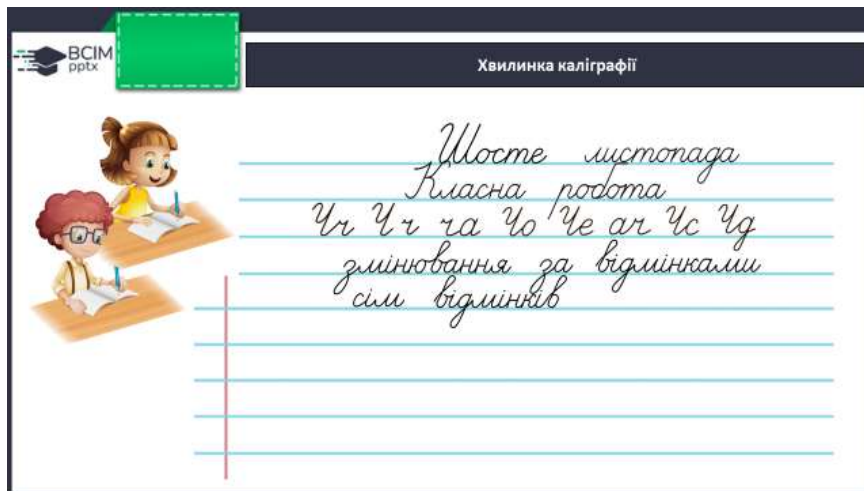 ВСІМ
pptx
Хвилинка каліграфії
Шосте листопада
Класна робота
Чч Ч ч ча Чо Че ач Чс Чд
змінювання за відмінками
сім відмінків